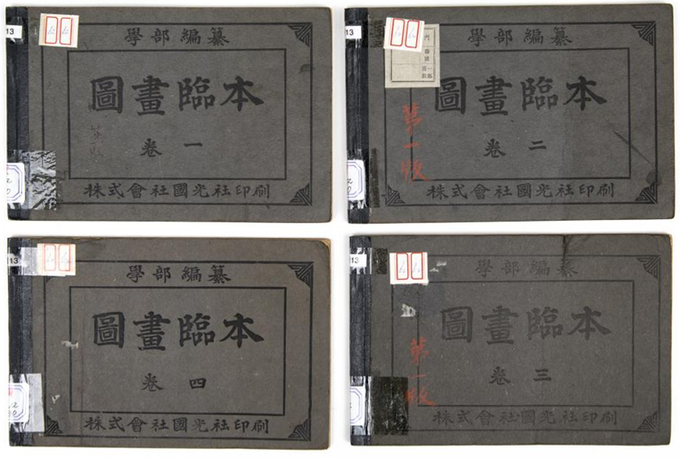 13
學部編纂
圖畫臨本
卷 一
株式會社國光社印刷
13
學部編纂
圖畫臨本
卷 二
第一版
株式會社國光社印刷
13
學部編纂
圖畫臨本
卷 四
株式會社國光社印刷
13
學部編纂
圖畫臨本
卷 三
第一版
株式會社國光社印刷